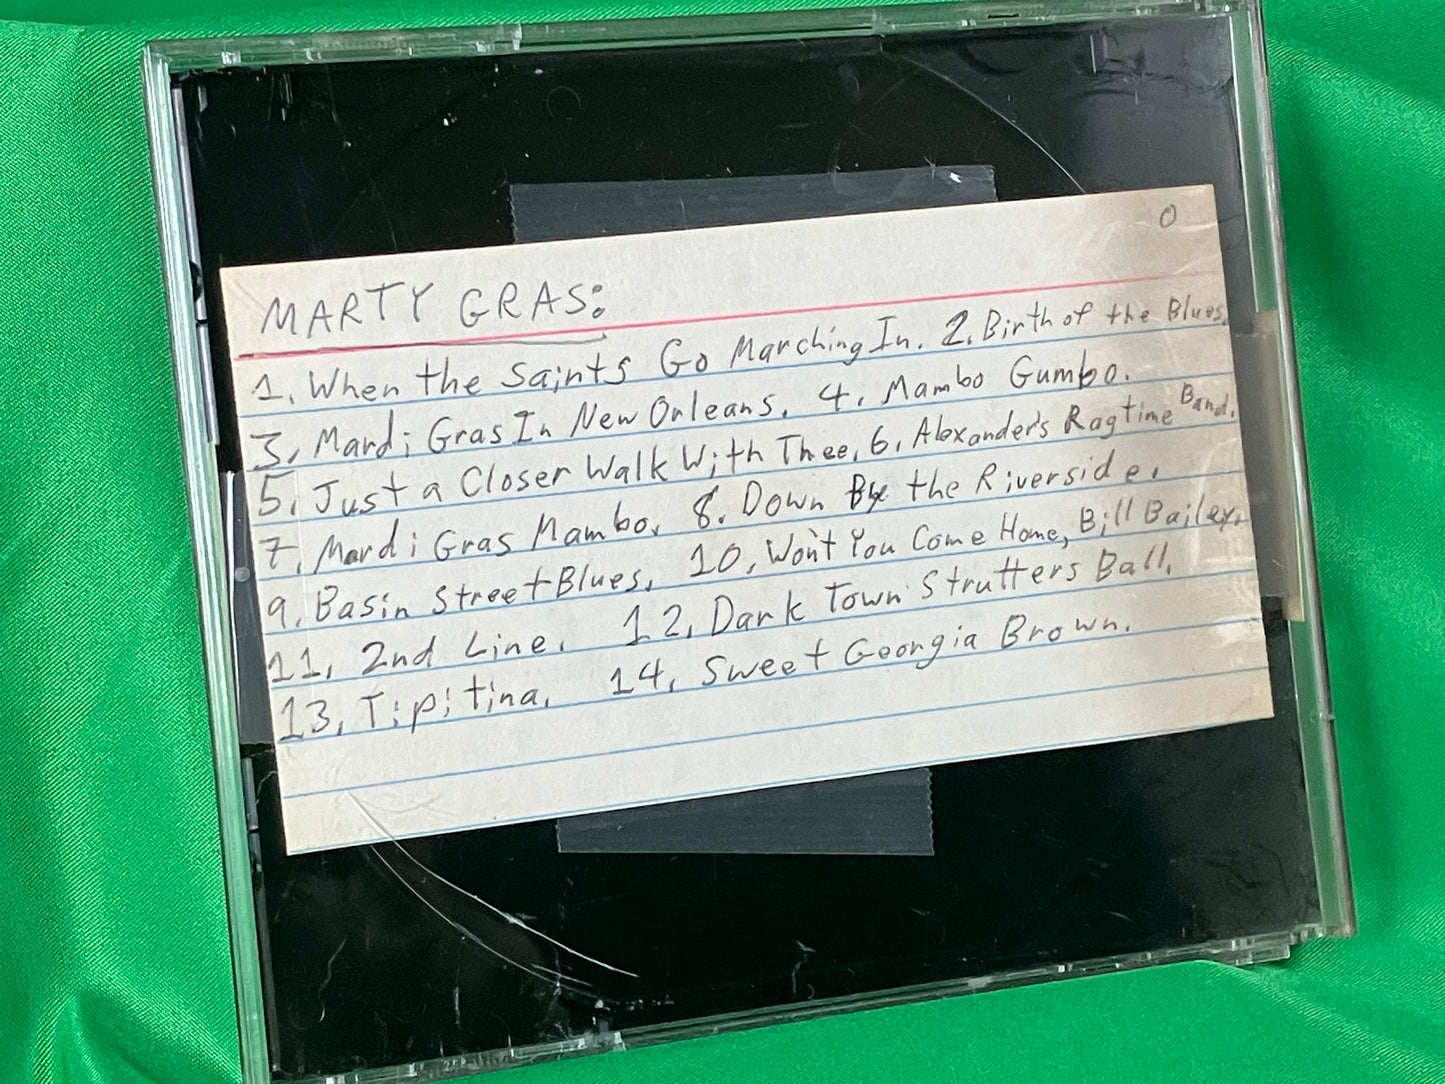 0
MARTY GRAS:
1. When the Saints Go Marching In. 2. Birth of the Blues.
3. Mardi Gras In New Orleans. 4. Mambo Gumbo.
5. Just a Closer Walk With Thee. 6. Alexander's Ragtime Band.
7. Mardi Gras Mambo. 8. Down By the Riverside.
9. Basin Street Blues. 10. Won't You Come Home, Bill Bailey.
11. 2nd Line. 12. Dark Town Strutters Ball.
13. Tipitina. 14. Sweet Georgia Brown.